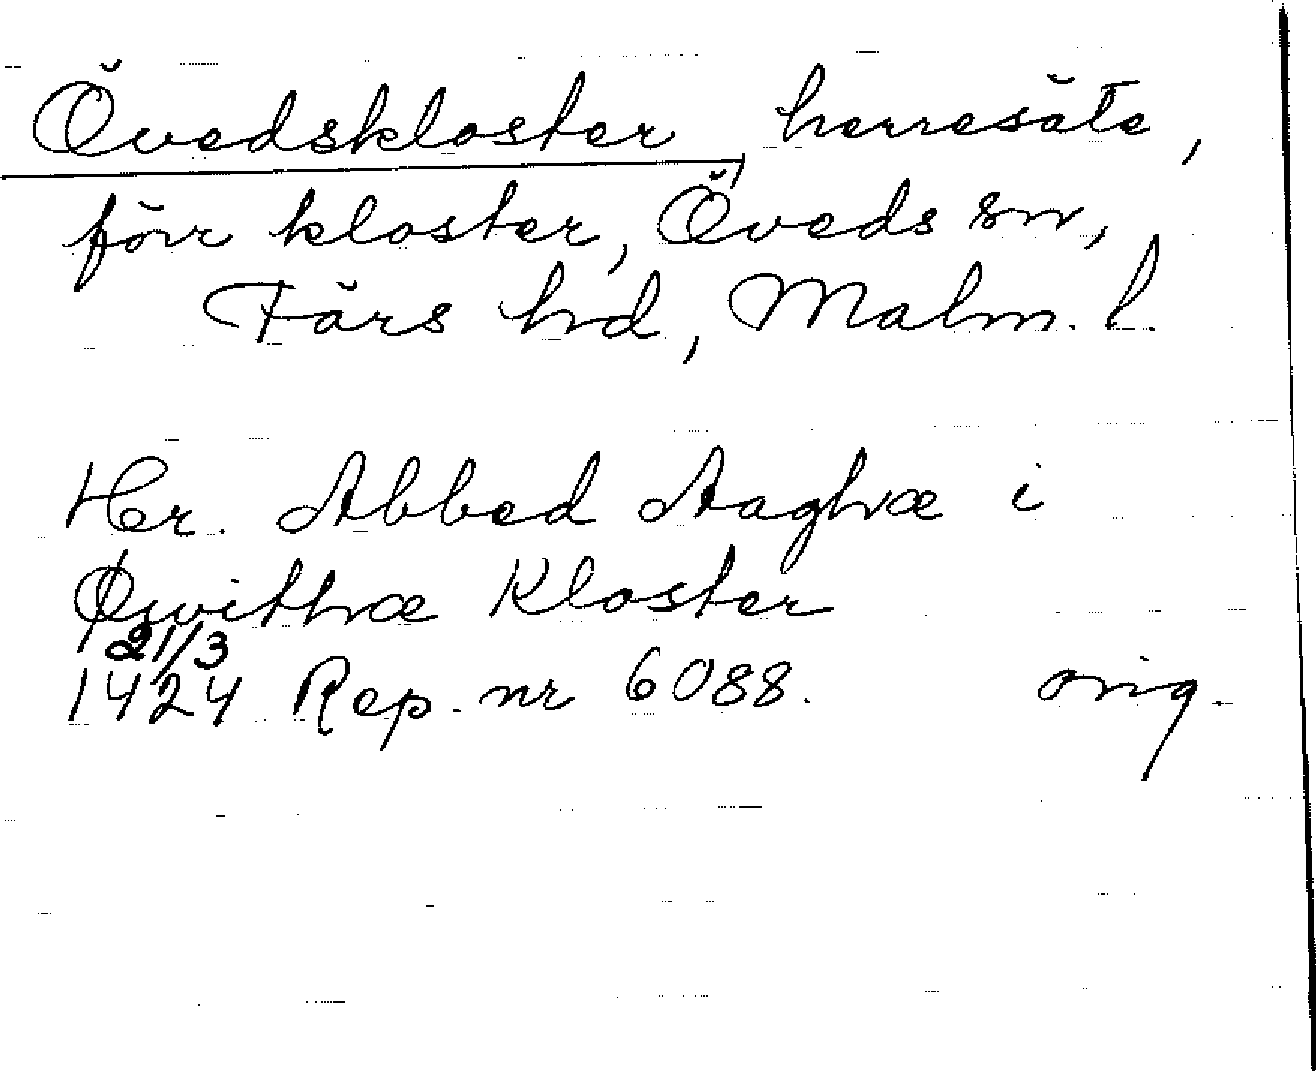 Övedskloster, herresäte,
förr kloster, Öveds sn,
Färs hd, Malm. l.
Her. Abbed Aaghæ i
Øwithæ Kloster
21/3
1424 Rep. nr 6088. orig.